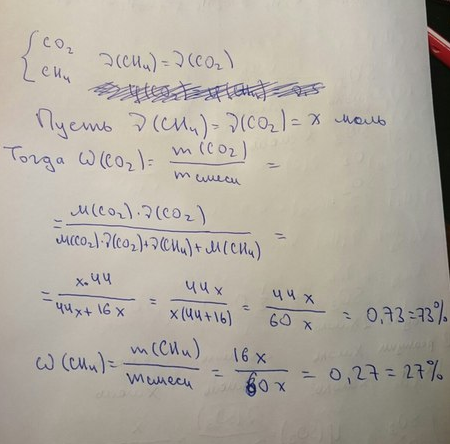 { CO2
CH4 ν(CH4) = ν(CO2)
Пусть ν(CH4) = ν(CO2) = x моль
Тогда ω(CO2) = m(CO2) / m смеси =
= M(CO2)·ν(CO2) / M(CO2)·ν(CO2)+ν(CH4)+M(CH4) =
= x·44 / 44x+16x = 44x / x(44+16) = 44x / 60x = 0,73=73%
ω(CH4) = m(CH4) / m смеси = 16x / 60x = 0,27 = 27%